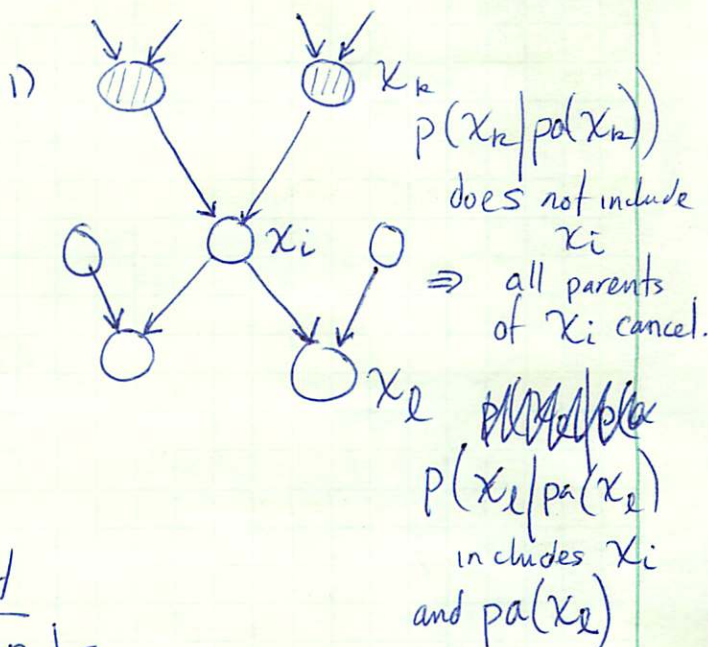 1)
xₖ
p(xₖ|pa(xₖ))
does not include
xᵢ
xᵢ
⇒ all parents
of xᵢ cancel.
xₗ
p(xₗ|pa(xₗ)
includes xᵢ
and pa(xₗ)